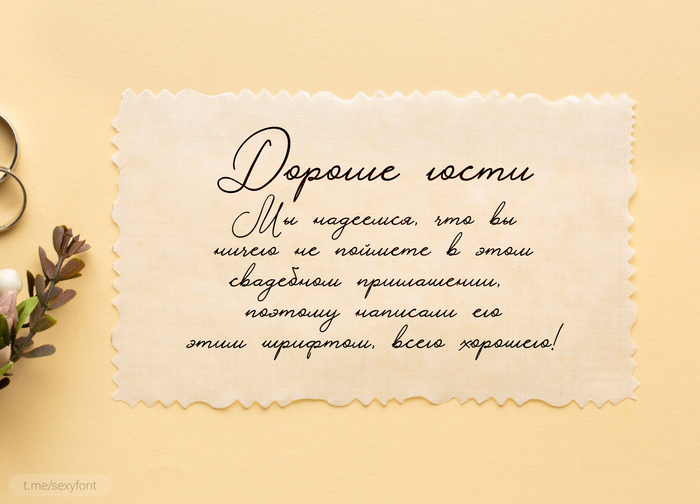 Дорогие гости
Мы надеемся, что вы
ничего не поймете в этом
свадебном приглашении,
поэтому написали его
этим шрифтом, всего хорошего!
t.me/sexyfont